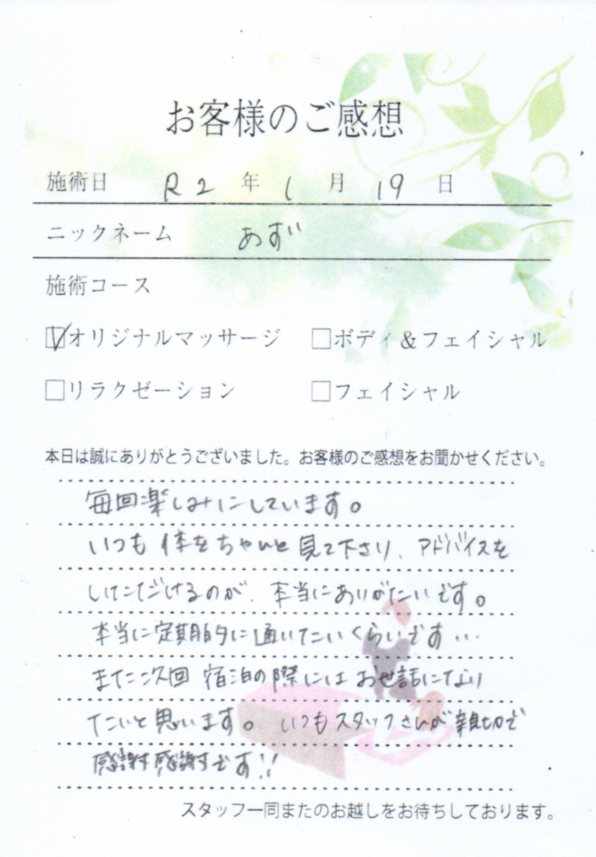 お客様のご感想
施術日 R2 年 1 月 19 日
ニックネーム あず
施術コース
☑オリジナルマッサージ □ボディ&フェイシャル
□リラクゼーション □フェイシャル
本日は誠にありがとうございました。お客様のご感想をお聞かせください。
毎回楽しみにしています。
いつも体をちゃんと見て下さり、アドバイスを
いただけるのが、本当にありがたいです。
本当に定期的に通いたいくらいです…
また次回 宿泊の際には お世話になり
たいと思います。いつもスタッフさんが親切で
感謝感謝です!!
スタッフ一同またのお越しをお待ちしております。